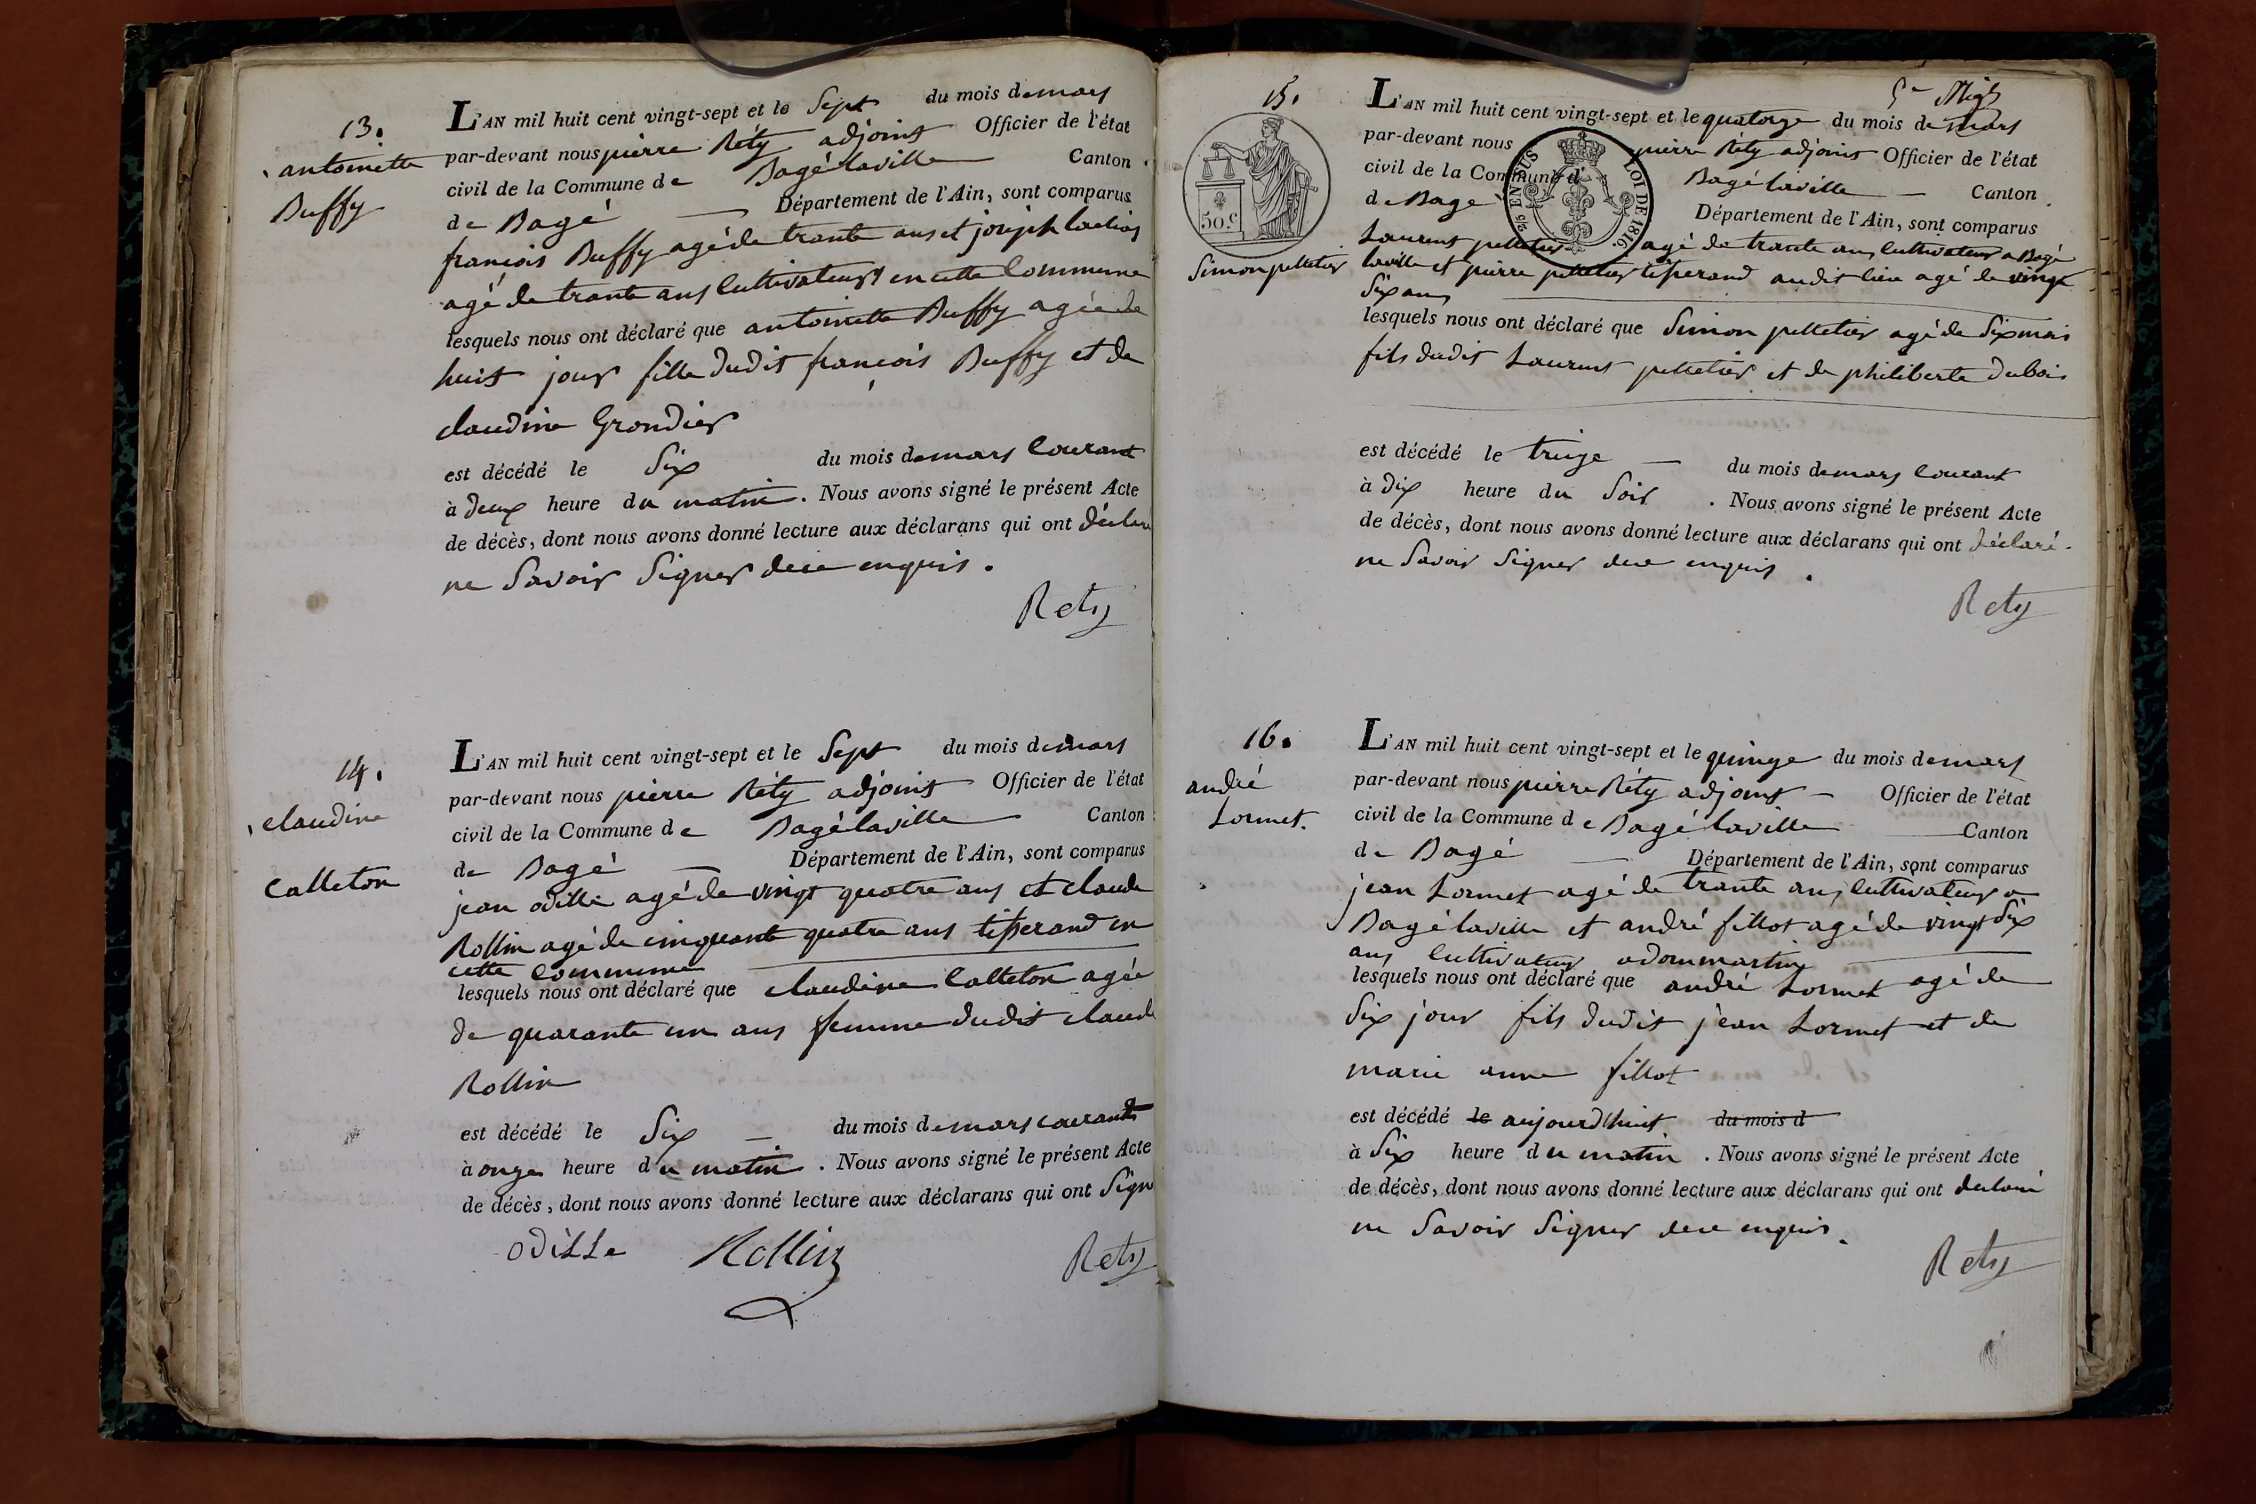 13.
antoinette
Buffy
L'AN mil huit cent vingt-sept et le Sept du mois de mars
par-devant nous pierre Réty adjoint Officier de l'état
civil de la Commune de Bagé laville Canton
de Bagé Département de l'Ain, sont comparus
francois Buffy agé de trante ans et joseph
agé de trante ans Cultivateurs en cette Commune
lesquels nous ont déclaré que antoinette Buffy agée de
huit jour fille dudit francois Buffy et de
claudine Grondier
est décédé le Six du mois de mars Courant
à deux heure du matin. Nous avons signé le présent Acte
de décès, dont nous avons donné lecture aux déclarans qui ont déclaré
ne Savoir Signer de ce enquis.
Rety
14.
claudine
Calleton
L'AN mil huit cent vingt-sept et le Sept du mois de mars
par-devant nous pierre Réty adjoint Officier de l'état
civil de la Commune de Bagé laville Canton
de Bagé Département de l'Ain, sont comparus
jean odille agé de vingt quatre ans et claude
Rollin agé de cinquante quatre ans tisserand en
cette commune
lesquels nous ont déclaré que claudine Calleton agée
de quarante un ans femme dudit claude
Rollin
est décédé le Six du mois de mars courant
à onze heure du matin. Nous avons signé le présent Acte
de décès, dont nous avons donné lecture aux déclarans qui ont Signé
odille Rollin Rety
15.
50 c.
Simon pelletier
2/5 EN SUS LOI DE 1816.
L'AN mil huit cent vingt-sept et le quatorze du mois de mars
par-devant nous pierre Réty adjoint Officier de l'état
civil de la Commune d Bagé laville Canton
de Bagé Département de l'Ain, sont comparus
Laurent pelletier agé de trante ans Cultivateur a Bagé
laville et pierre pelletier tisserand audit lieu agé de vingt
Six ans
lesquels nous ont déclaré que Simon pelletier agé de Six mois
fils dudit Laurent pelletier et de philiberte dubois
est décédé le treize du mois de mars Courant
à dix heure du Soir. Nous avons signé le présent Acte
de décès, dont nous avons donné lecture aux déclarans qui ont déclaré
ne Savoir Signer de ce enquis.
Rety
16.
andré
Lormet.
L'AN mil huit cent vingt-sept et le quinze du mois de mars
par-devant nous pierre Réty adjoint Officier de l'état
civil de la Commune de Bagé laville Canton
de Bagé Département de l'Ain, sont comparus
jean Lormet agé de trante ans Cultivateur a
Bagé laville et andré fillot agé de vingt Six
ans Cultivateur a dommartin
lesquels nous ont déclaré que andré Lormet agé de
Six jour fils dudit jean Lormet et de
marie anne fillot
est décédé le aujourd'huit du mois d
à Six heure du matin. Nous avons signé le présent Acte
de décès, dont nous avons donné lecture aux déclarans qui ont declaré
ne Savoir Signer de ce enquis.
Rety